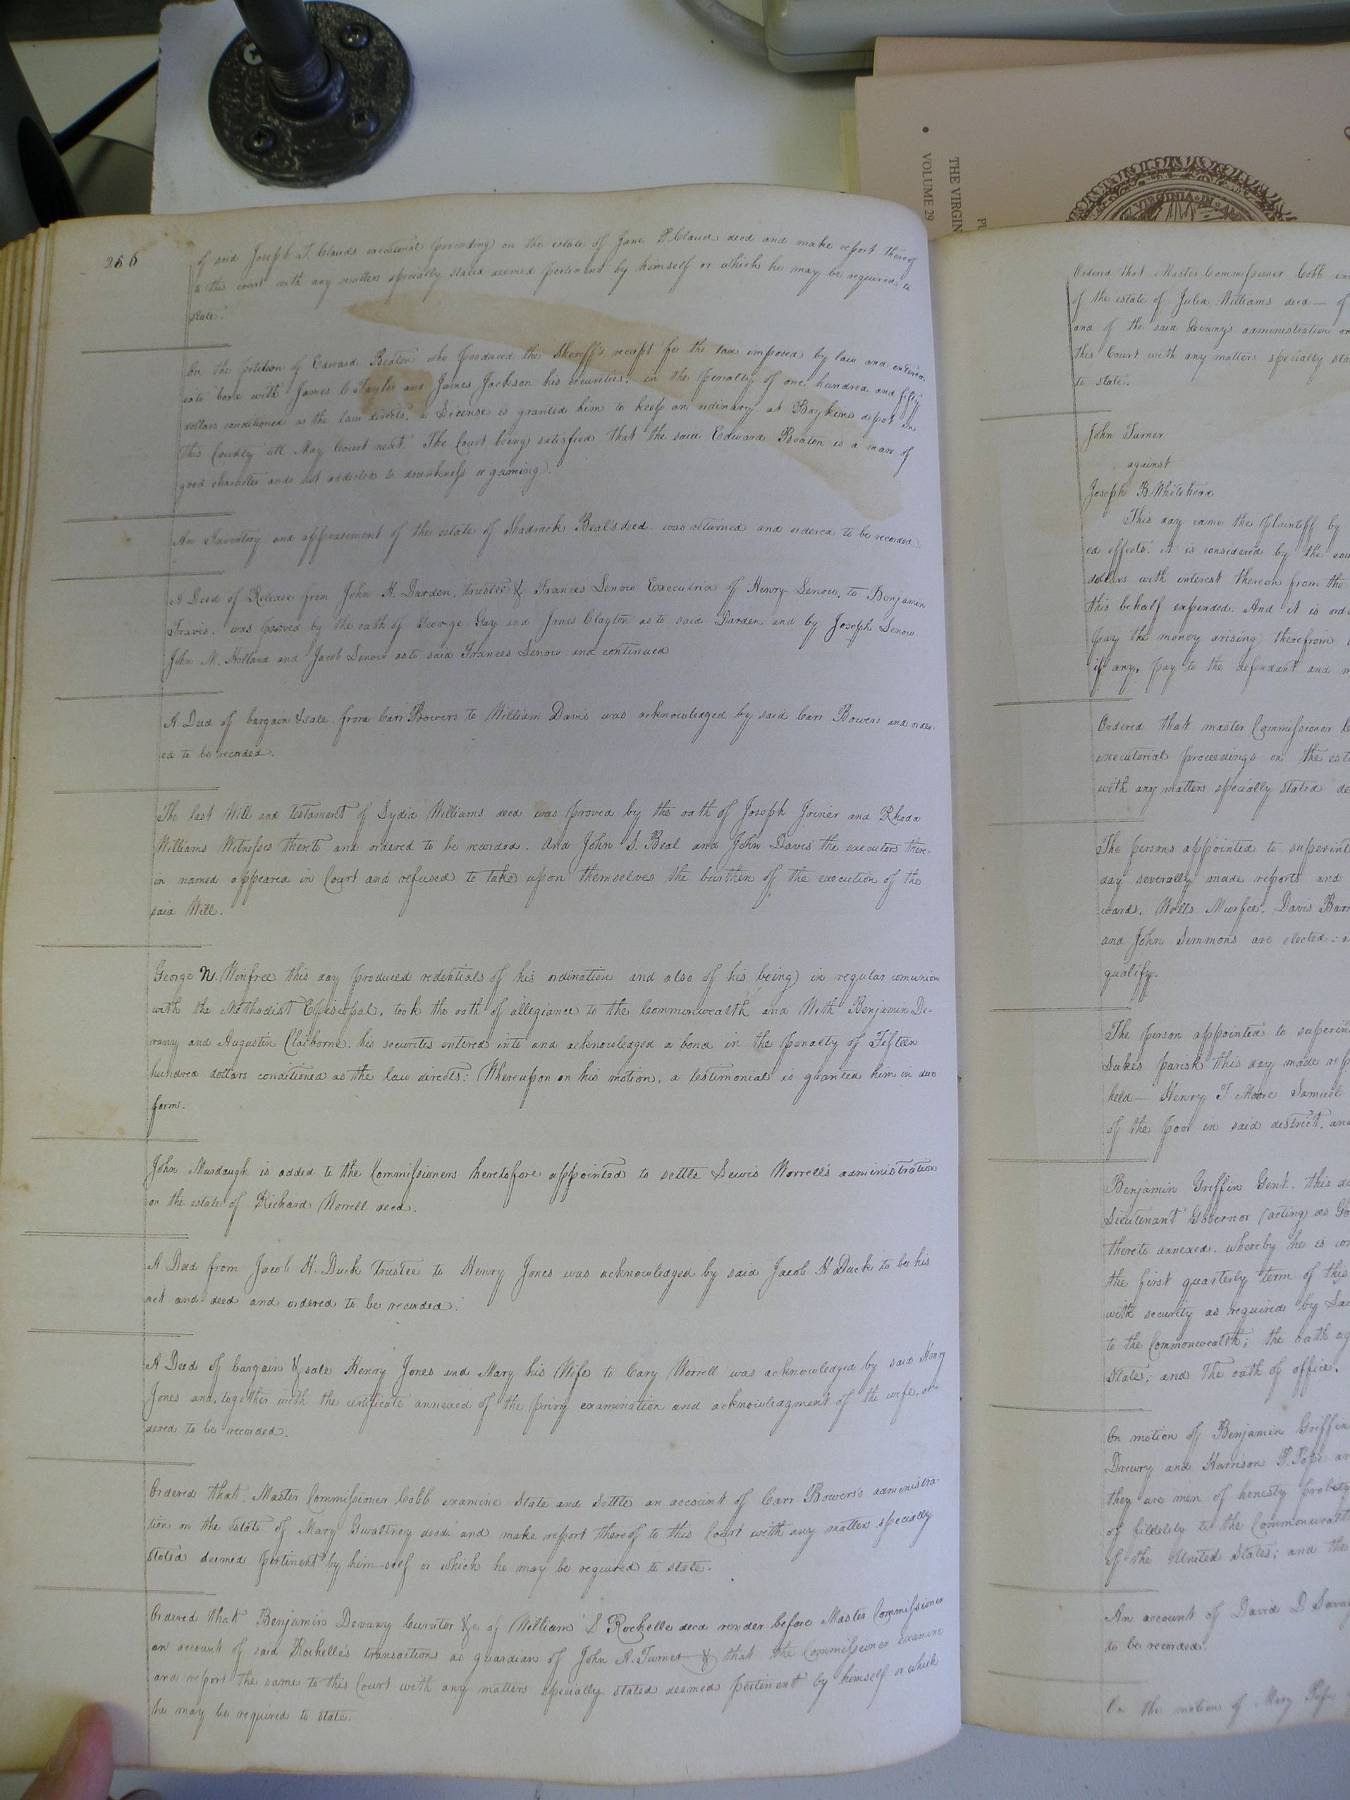 256
of said Joseph T. Clauds executorial proceedings on the estate of Jane P. Claud decd and make report thereof
to this court with any matters specially stated deemed pertinent by himself or which he may be required to
state.
On the petition of Edward Beaton who produced the Sheriff's receipt for the tax imposed by law and entered
into bond with James C Taylor and James Jackson his securities, in the penalty of one hundred and fifty
dollars conditioned as the law directs, a License is granted him to keep an ordinary at Boykins depot in
this County till May Court next. The Court being satisfied that the said Edward Beaton is a man of
good character and not addicted to drunkness or gaming.
An Inventory and appraisement of the estate of Shadrack Beals decd was returned and ordered to be recorded.
A Deed of Release from John H. Darden, trustee & Frances Lenow Executrix of Henry Lenow, to Benjamin
Travis, was proved by the oath of George Gay and James Clayton as to said Darden and by Joseph Lenow
John M. Holland and Jacob Lenow as to said Frances Lenow and continued
A Deed of bargain & sale from Carr Bowers to William Davis was acknowledged by said Carr Bowers and order-
ed to be recorded.
The last Will and testament of Lydia Williams decd was proved by the oath of Joseph Joiner and Rhoda
Williams Witnesses thereto and ordered to be recorded. And John S. Beal and John Davis the executors there-
in named appeared in Court and refused to take upon themselves the burthen of the execution of the
said Will.
George N. Winfree this day produced redentials of his ordination and also of his being in regular comunion
with the Methodist Episcopal, took the oath of allegiance to the Commonwealth and With Benjamin De-
vany and Augustin Claiborne, his securites entered into and acknowledged a bond in the penalty of Fifteen
hundred dollars conditioned as the law directs: Whereupon on his motion, a testimonial is granted him in due
form.
John Murdaugh is added to the Commissioners heretofore appointed to settle Lewis Worrell's administration
on the estate of Richard Worrell decd.
A Deed from Jacob H. Duck trustee to Henry Jones was acknowledged by said Jacob H Duck to be his
act and deed and ordered to be recorded.
A Deed of bargain & sale Henry Jones and Mary his Wife to Cary Worrell was acknowledged by said Henry
Jones and, together with the certificate annexed of the privy examination and acknowledgment of the wife, or-
dered to be recorded.
Ordered that Master Commissioner Cobb examine State and Settle an account of Carr Bowers's administra-
tion on the estate of Mary Gwaltney decd and make report thereof to this Court with any matter specially
stated deemed pertinent by him-self or which he may be required to state.
Ordered that Benjamin Devany Curator &c of William S Rochelle decd render before Master Commissioner
an account of said Rochelle's transactions as guardian of John A. Turner & that the Commissioner examine
and report the same to this Court with any matters specially stated deemed pertinent by himself or which
he may be required to state.
THE VIRGIN
VOLUME 29
Ordered that Master Commissioner Cobb
of the estate of Julia Williams decd — of
and of the said Devany's administration on
this Court with any matters specially sta
to state.
John Turner
against
Joseph B. Whitehead
This day came the plaintiff by
ed effects, it is considered by the cou
dollars with interest thereon from the
this behalf expended. And it is ord
pay the money arising therefrom
if any, pay to the defendant and
Ordered that master Commissioner
executorial proceedings on the est
with any matters specially stated de
The persons appointed to superint
day severally made reports and
wards, Wells Murfee, Davis Barn
and John Simmons are elected
qualify.
The person appointed to superin
Lukes parish this day made rep
held — Henry T Moore Samuel
of the poor in said district, and
Benjamin Griffin Gent. this da
Lieutenant Governor (acting as Go
thereto annexed, whereby he is con
the first quarterly term of this
with security as required by Law
to the Commonwealth; the oath ag
State; and The oath of office.
On motion of Benjamin Griffin
Drewry and Harrison P. Pope ar
they are men of honesty probity
of fidelity to the Commonwealth
of the United States; and the
An account of David D Dava
to be recorded.
On the motion of Mary Pope